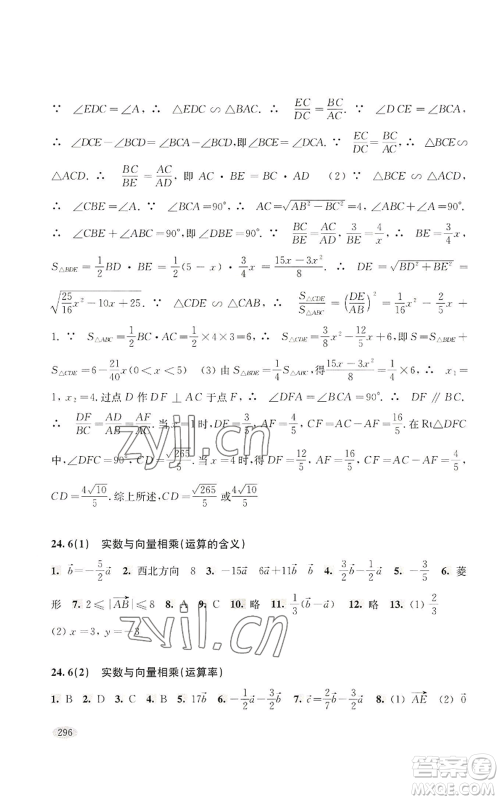 ∵ ∠EDC=∠A, ∴ △EDC∽△ABC. ∴ EC/DC=BC/AC. ∵ ∠DCE=∠BCA,
∴ ∠DCE-∠BCD=∠BCA-∠BCD, 即∠BCE=∠DCA. ∴ △BCE∽
△ACD. ∴ BC/BE=AC/AD. 即 AC·BE=BC·AD (2) ∵ △BCE∽△ACD,
∴ ∠CBE=∠A. ∵ ∠ABC=90°, ∴ AC=√(AB²-BC²)=4, ∠ABC+∠A=90°.
∴ ∠CBE+∠ABC=90°, 即∠DBE=90°. ∵ BC/BE=AC/AD, ∴ BE=3/4 x,
S△BDE=1/2 BD·BE=1/2(5-x)·3/4 x=(15x-3x²)/8. ∴ DE=√(BD²+BE²)=
√(25/16 x²-10x+25). ∵ △CDE∽△CAB, ∴ S△CDE/S△ABC=(DE/AB)²=1/16 x²-2/5 x+
1. ∵ S△ABC=1/2×4×3=6, ∴ S△CDE=3/8 x²-12/5 x+6. ∴ S=S△CDE-
S△BDE=6-21/40 x(0<x<5) (3) 由S△BDE=1/4 S△ABC, 得(15x-3x²)/8=1/4×6. ∴ x₁=
1, x₂=4. 过点 D 作 DF⊥AC 于点 F. ∴ ∠DFA=∠ACB=90°. ∴ DF∥BC.
∴ DF/BC=AD/AB=AF/AC. 当 x=1时, DF=3/5, AF=4/5. ∴ CF=16/5. 在 Rt△DFC
中, ∠DFC=90°, CD=√265/5. 当 x=4时, 得 DE=12/5, AF=16/5, CF=4/5,
CD=4√10/5. 综上所述, CD=√265/5 或 4√10/5
24.6(1) 实数与向量相乘(运算的含义)
1. b⃗=-5/2 a⃗ 2. 西北方向 8 3. -15a⃗ 6a⃗+11b⃗ b⃗ 4. 略 5. -3/5 6. 菱
形 7. 2≤|AB⃗|≤8 8. A 9. C 10. 略 11. 1/3(b⃗-a⃗) 12. 略 13. (1) 2/3
(2) x=3, y=-3
24.6(2) 实数与向量相乘(运算率)
1. B 2. D 3. B 4. C 5. 10b⃗ 6. -1/2 a⃗-1/3 b⃗ 7. c⃗=2/7 b⃗-1/7 a⃗ 8. (1) AE⃗ (2) 0⃗
296
zyjl.cn
zyjl.cn
答案圈
MXQE.COM